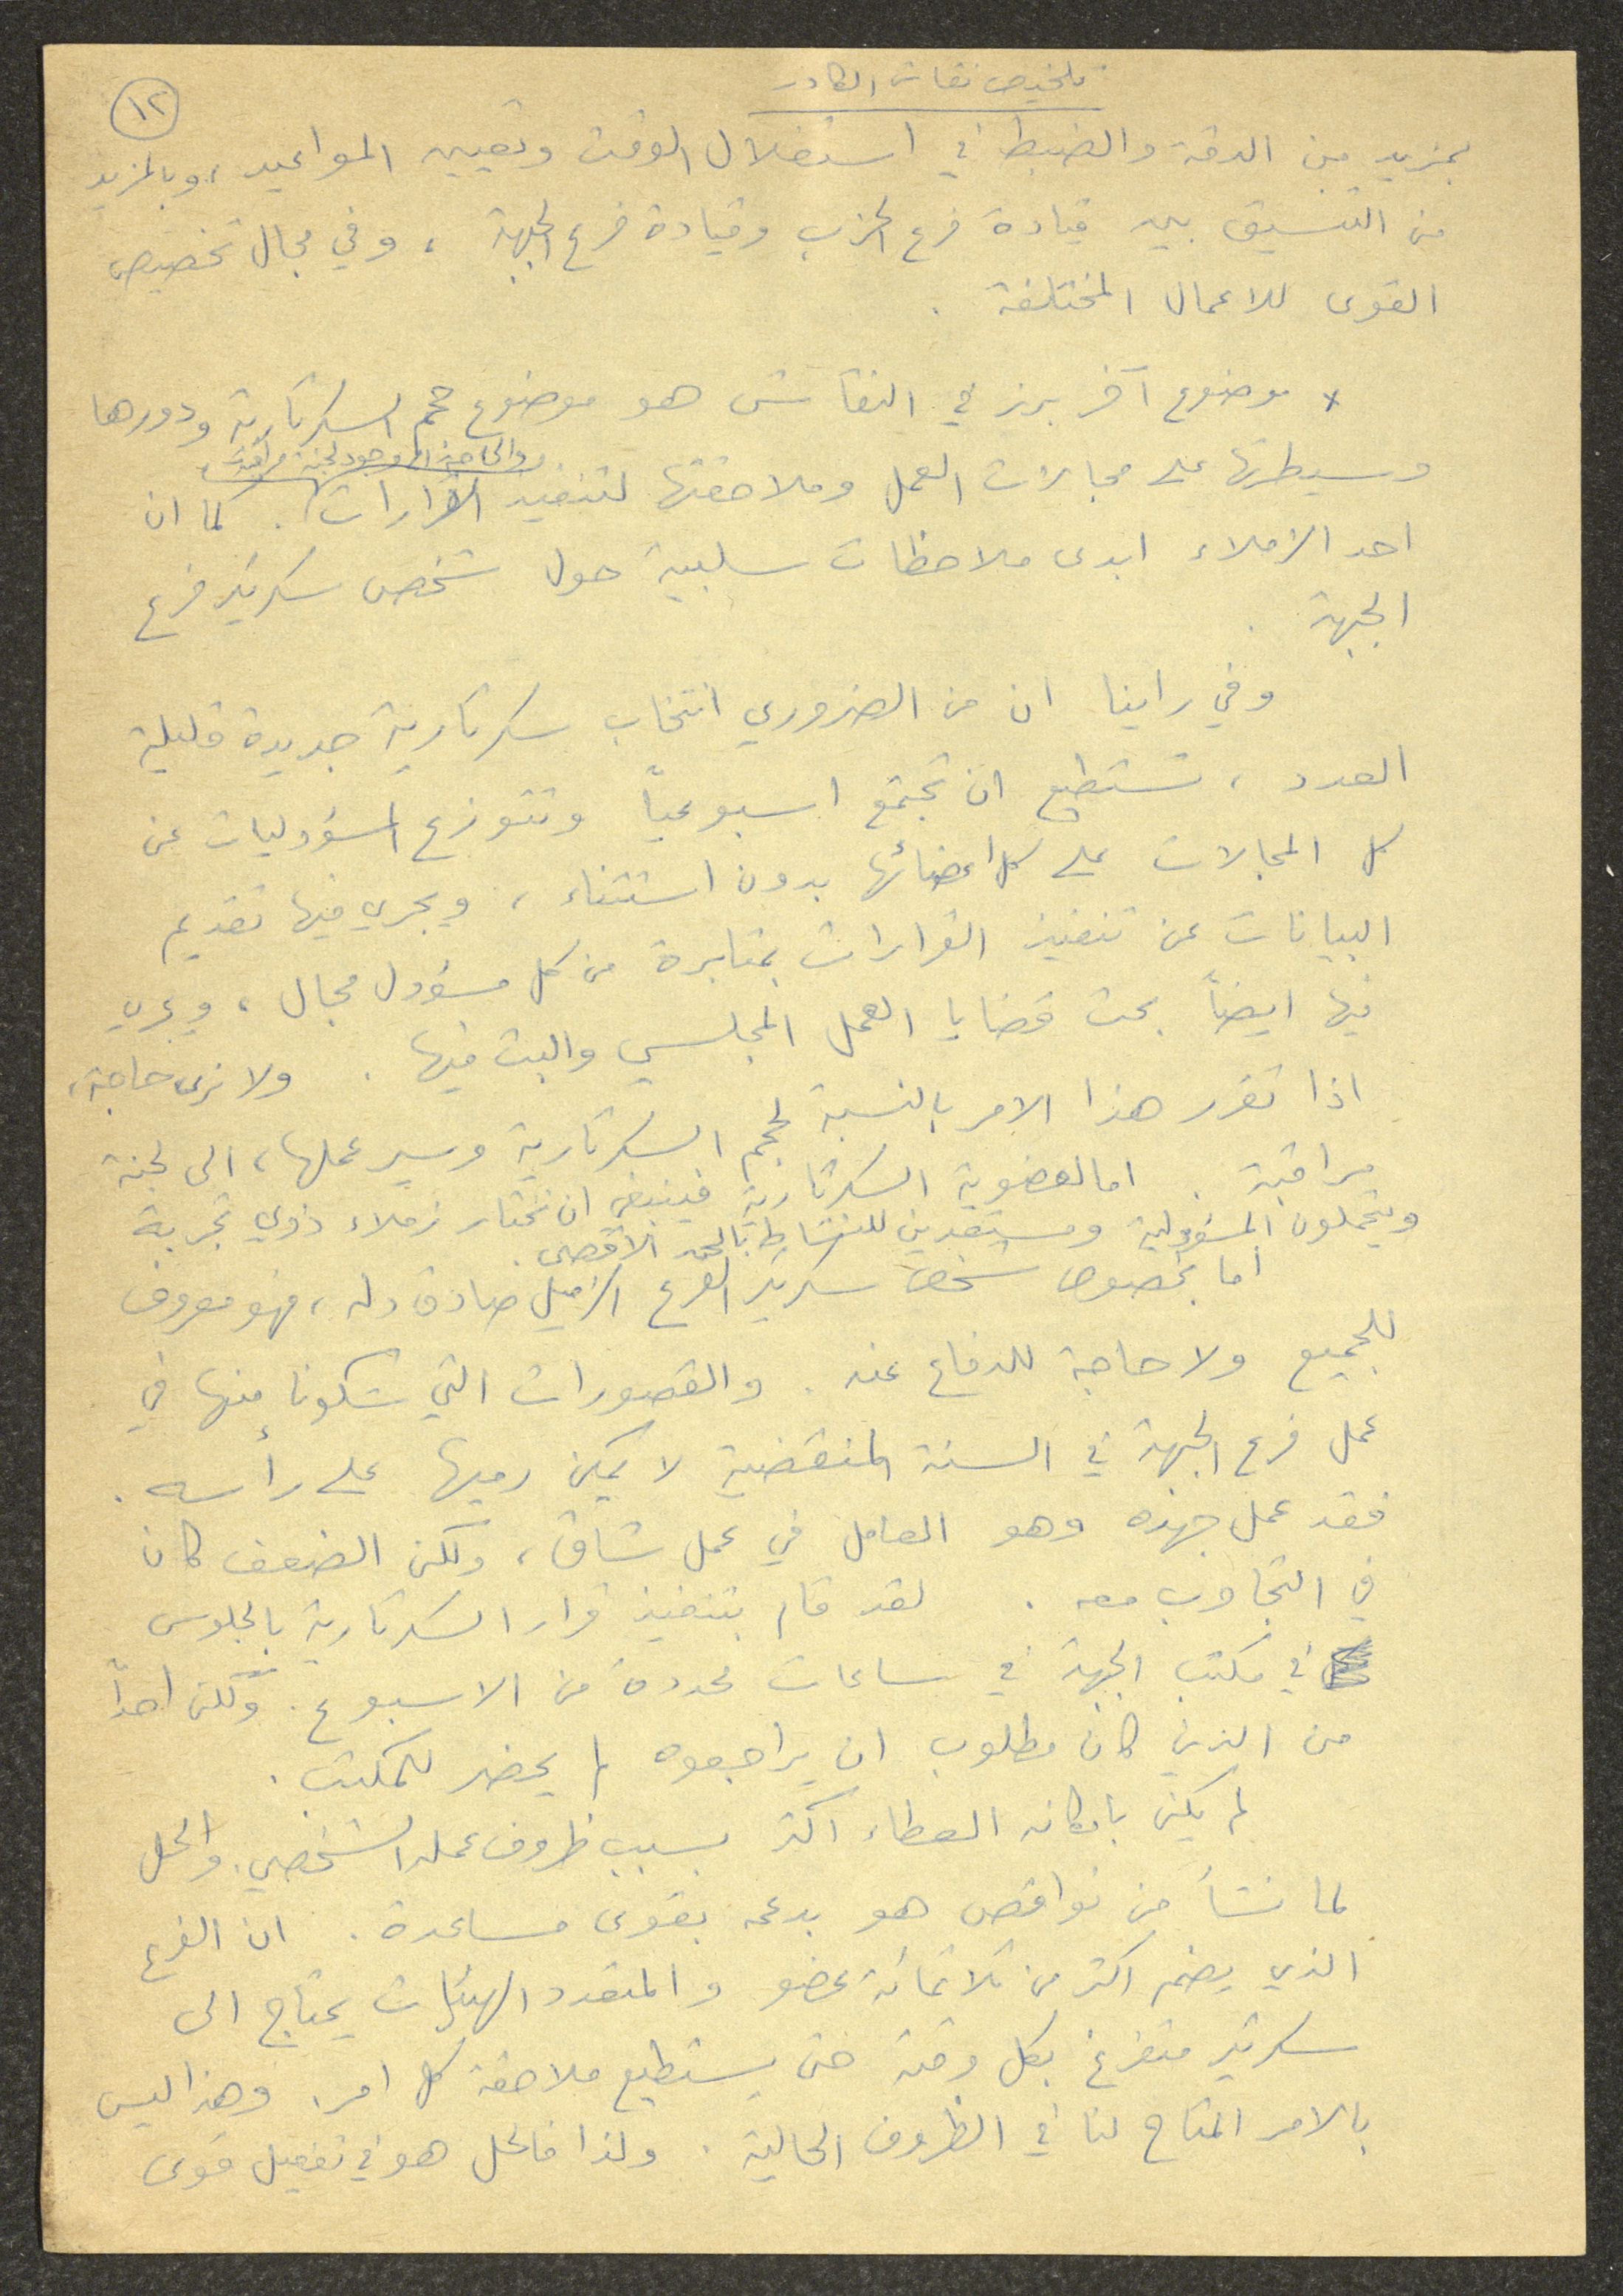 تلخيص نقاش الكادر
١٢
بمزيد من الدقة والضبط في استغلال الوقت وتعيين المواعيد، وبالمزيد
من التنسيق بين قيادة فرع الحزب وقيادة فرع الجبهة، وفي مجال تخصيص
القوى للاعمال المختلفة.
* موضوع آخر برز في النقاش هو موضوع حجم السكرتارية ودورها
والحاجة الى وجود لجنة مراقبة
وسيطرتها على مجالات العمل وملاحقتها لتنفيذ القرارات. كما ان
احد الزملاء ابدى ملاحظات سلبية حول شخص سكرتير فرع
الجبهة.
وفي راينا ان من الضروري انتخاب سكرتارية جديدة قليلة
العدد، تستطيع ان تجتمع اسبوعياً وتتوزع المسؤوليات عن
كل المجالات على كل اعضائها بدون استثناء، ويجري فيها تقديم
البيانات عن تنفيذ القرارات بمثابرة من كل مسؤول مجال، ويجري
فيها ايضاً بحث قضايا العمل المجلسي والبت فيها. ولا نرى حاجة،
اذا تقرر هذا الامر بالنسبة لحجم السكرتارية وسير عملها، الى لجنة
مراقبة. اما لعضوية السكرتارية فينبغي ان نختار زملاء ذوي تجربة
ويتحملون المسؤولية ومستعدين للنشاط بالحد الاقصى.
اما بخصوص شخص سكرتير الفرع الزميل صادق دله، فهو معروف
للجميع ولا حاجة للدفاع عنه. والقصورات التي شكونا منها في
عمل فرع الجبهة في السنة المنقضية لا يمكن رميها على رأسه.
فقد عمل جهده وهو العامل في عمل شاق، ولكن الضعف كان
في التجاوب معه. لقد قام بتنفيذ قرار السكرتارية بالجلوس
في مكتب الجبهة في ساعات محددة من الاسبوع. ولكن احداً
من الذين كان مطلوب ان يراجعوه لم يحضر للمكتب.
لم يكن بامكانه العطاء اكثر بسبب ظروف عمله الشخصي. والحل
لما نشأ من نواقص هو بدعمه بقوى مساعدة. ان الفرع
الذي يضم اكثر من ثلاثمائة عضو والمتعدد الهيئات يحتاج الى
سكرتير متفرغ بكل وقته حتى يستطيع ملاحقة كل امر. وهذا ليس
بالامر المتاح لنا في الظروف الحالية. ولذا فالحل هو في تفعيل قوى